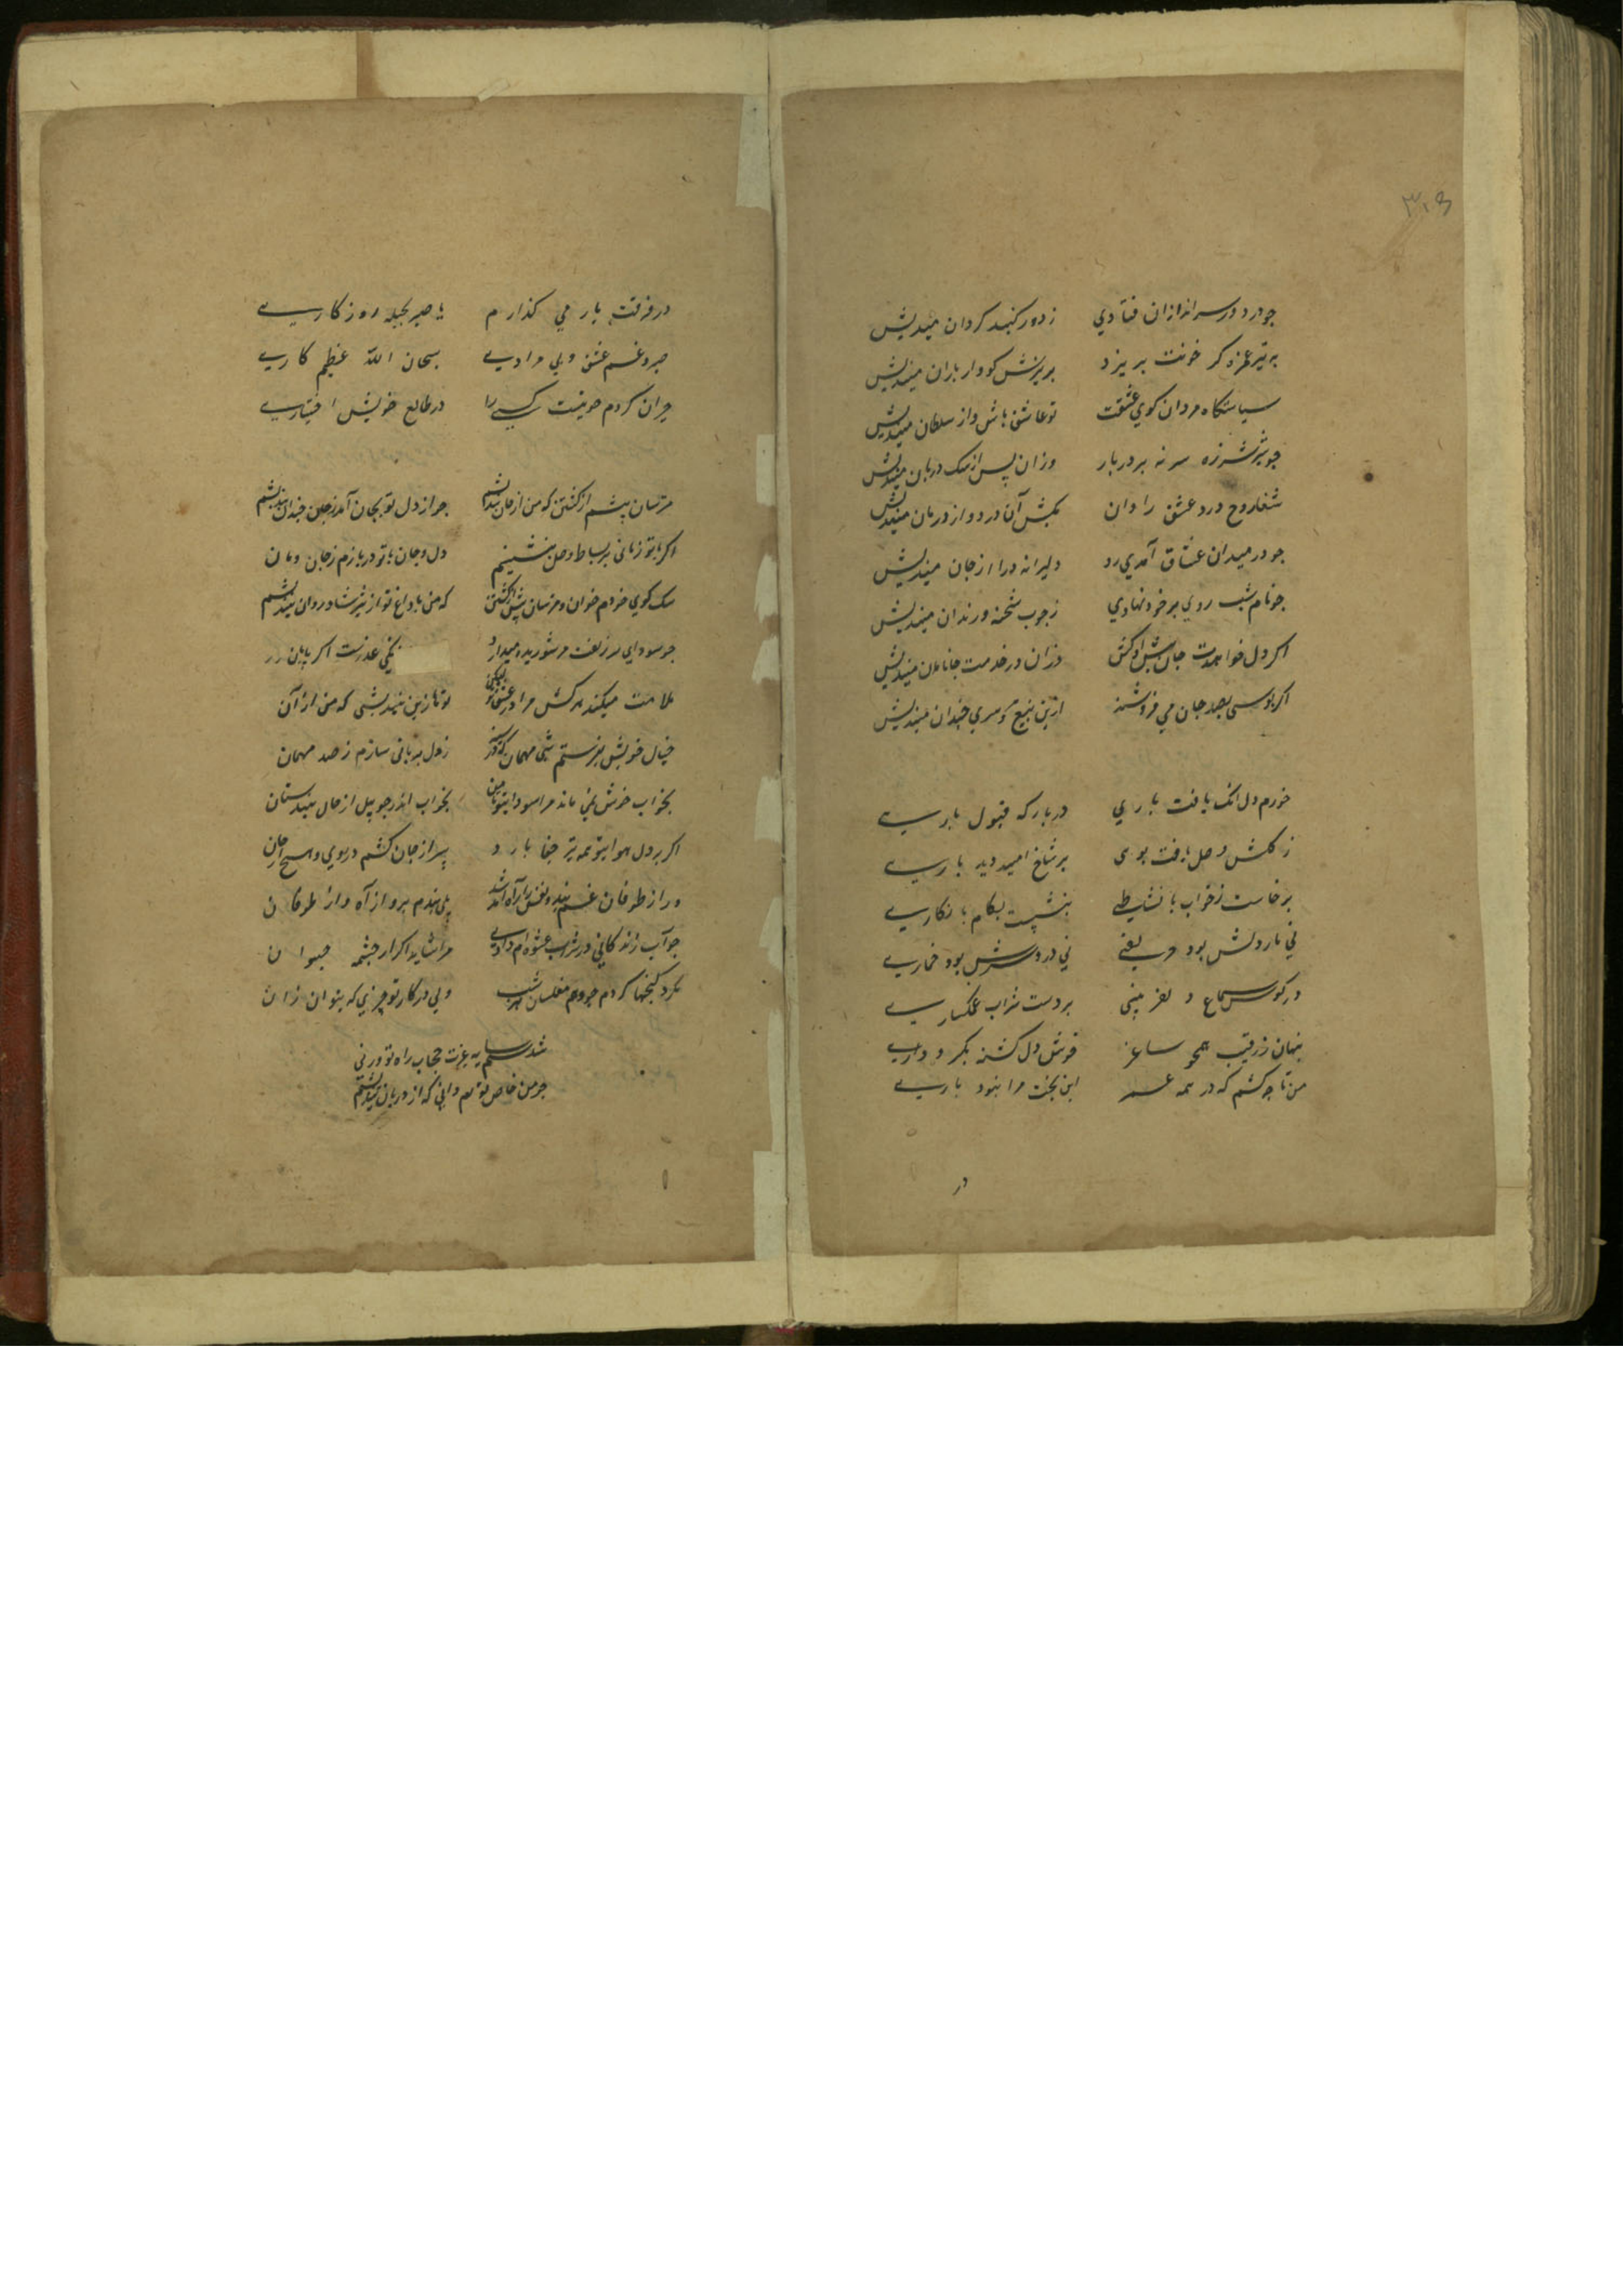 ۳۰۵
چو در دور سراندازان فتادی زدور کنبد کردان میندیش
به تیر غمزه کر خونت بریزد بریزش کو و از باران میندیش
سیاستکاه مردان کوی عشقت تو عاشق باش و از سلطان میندیش
چو شیر شرزه سر نه بر در یار وزان پس از سک دربان میندیش
شفا روح درد عشق را دان بکش آن درد و از درمان میندیش
چو در میدان عشاق آمدی رو دلیرانه درا از جان میندیش
چو نام شب روی بر خود نهادی زچوب شحنه و زندان میندیش
اکر دل خواهدت جان پیش او کش وزان در خدمت جانان میندیش
اکر بوسی بصد جان می فروشند ازین بیع ای سری چندان میندیش
خرم دل انک یافت باری در بارکه قبول یاری
ز کلشن وصل یافت بوی بر شاخ امید دید باری
برخاست زخواب با نشیطی بنشست بکام با نکاری
نی بار دلش بود حریفی نی درد سرش بود خماری
در کوش سماع نغز بیتی بر دست شراب غمکساری
پنهان زرقیب همچو ساغر خوش دل کشته بکیر و داری
من تا چو کشم که در همه عمر این بخت مرا نبود باری
در
در فرقت یار می کذارم با صبر بحیله روزکاری
صبر و غم عشق و بی مرادی سبحان الله عظیم کاری
حیران کردم چو نیست کسی را در طالع خویش اختیاری
مترسان پیشم از کشتن که من از جان نیندیشم چو از دل تو بجان آمد زجان چندان نیندیشم
اکر با تو زمانی بر بساط وصل بنشینم دل و جان با تو دربازم زجان و مان
سک کوی خودم خوان و مترسان پیش از کشتن که من با داغ تو از شیر شادروان نیندیشم
چو سودای سر زلفت مر شوریده میدارد نکنی عذرست اکر پایان
ملامت میکند هرکس مرا در عشق تو لیکن تو تا زین نیندیشی که من از آن
خیال خویش بفرستم شبی مهمان زدل بریانی سازم زصد مهمان
بخواب خوش نمی ماند مرا سودا بخواب اندر چو پیل از حال هندستان
اکر بر دل هوا تو همه تیر جفا بارد سپر از جان کشم در روی و هیچ از جان
ور از طوفان غم بندد نفس را راه آمد شد پلی بندم برو از آه و از طوفان
چو آب زندکانی در شراب عشوه ام دادی مرا شاید اکر از چشمه حیوان
بکرد کنجها کردم چو وهم مفلسان هر شب ولی در کار تو چیزی که بتوان زان
شدستم سایه عزت حجاب راه تو ورنی
چو من خاص توام دانی که از دربان نیندیشم